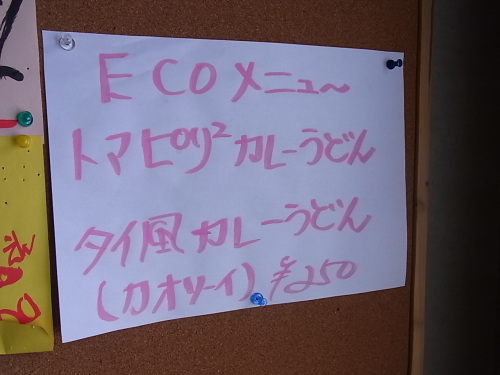 ECOメニュー
トマピリ²カレーうどん
タイ風カレーうどん
(カオソーイ) ¥250